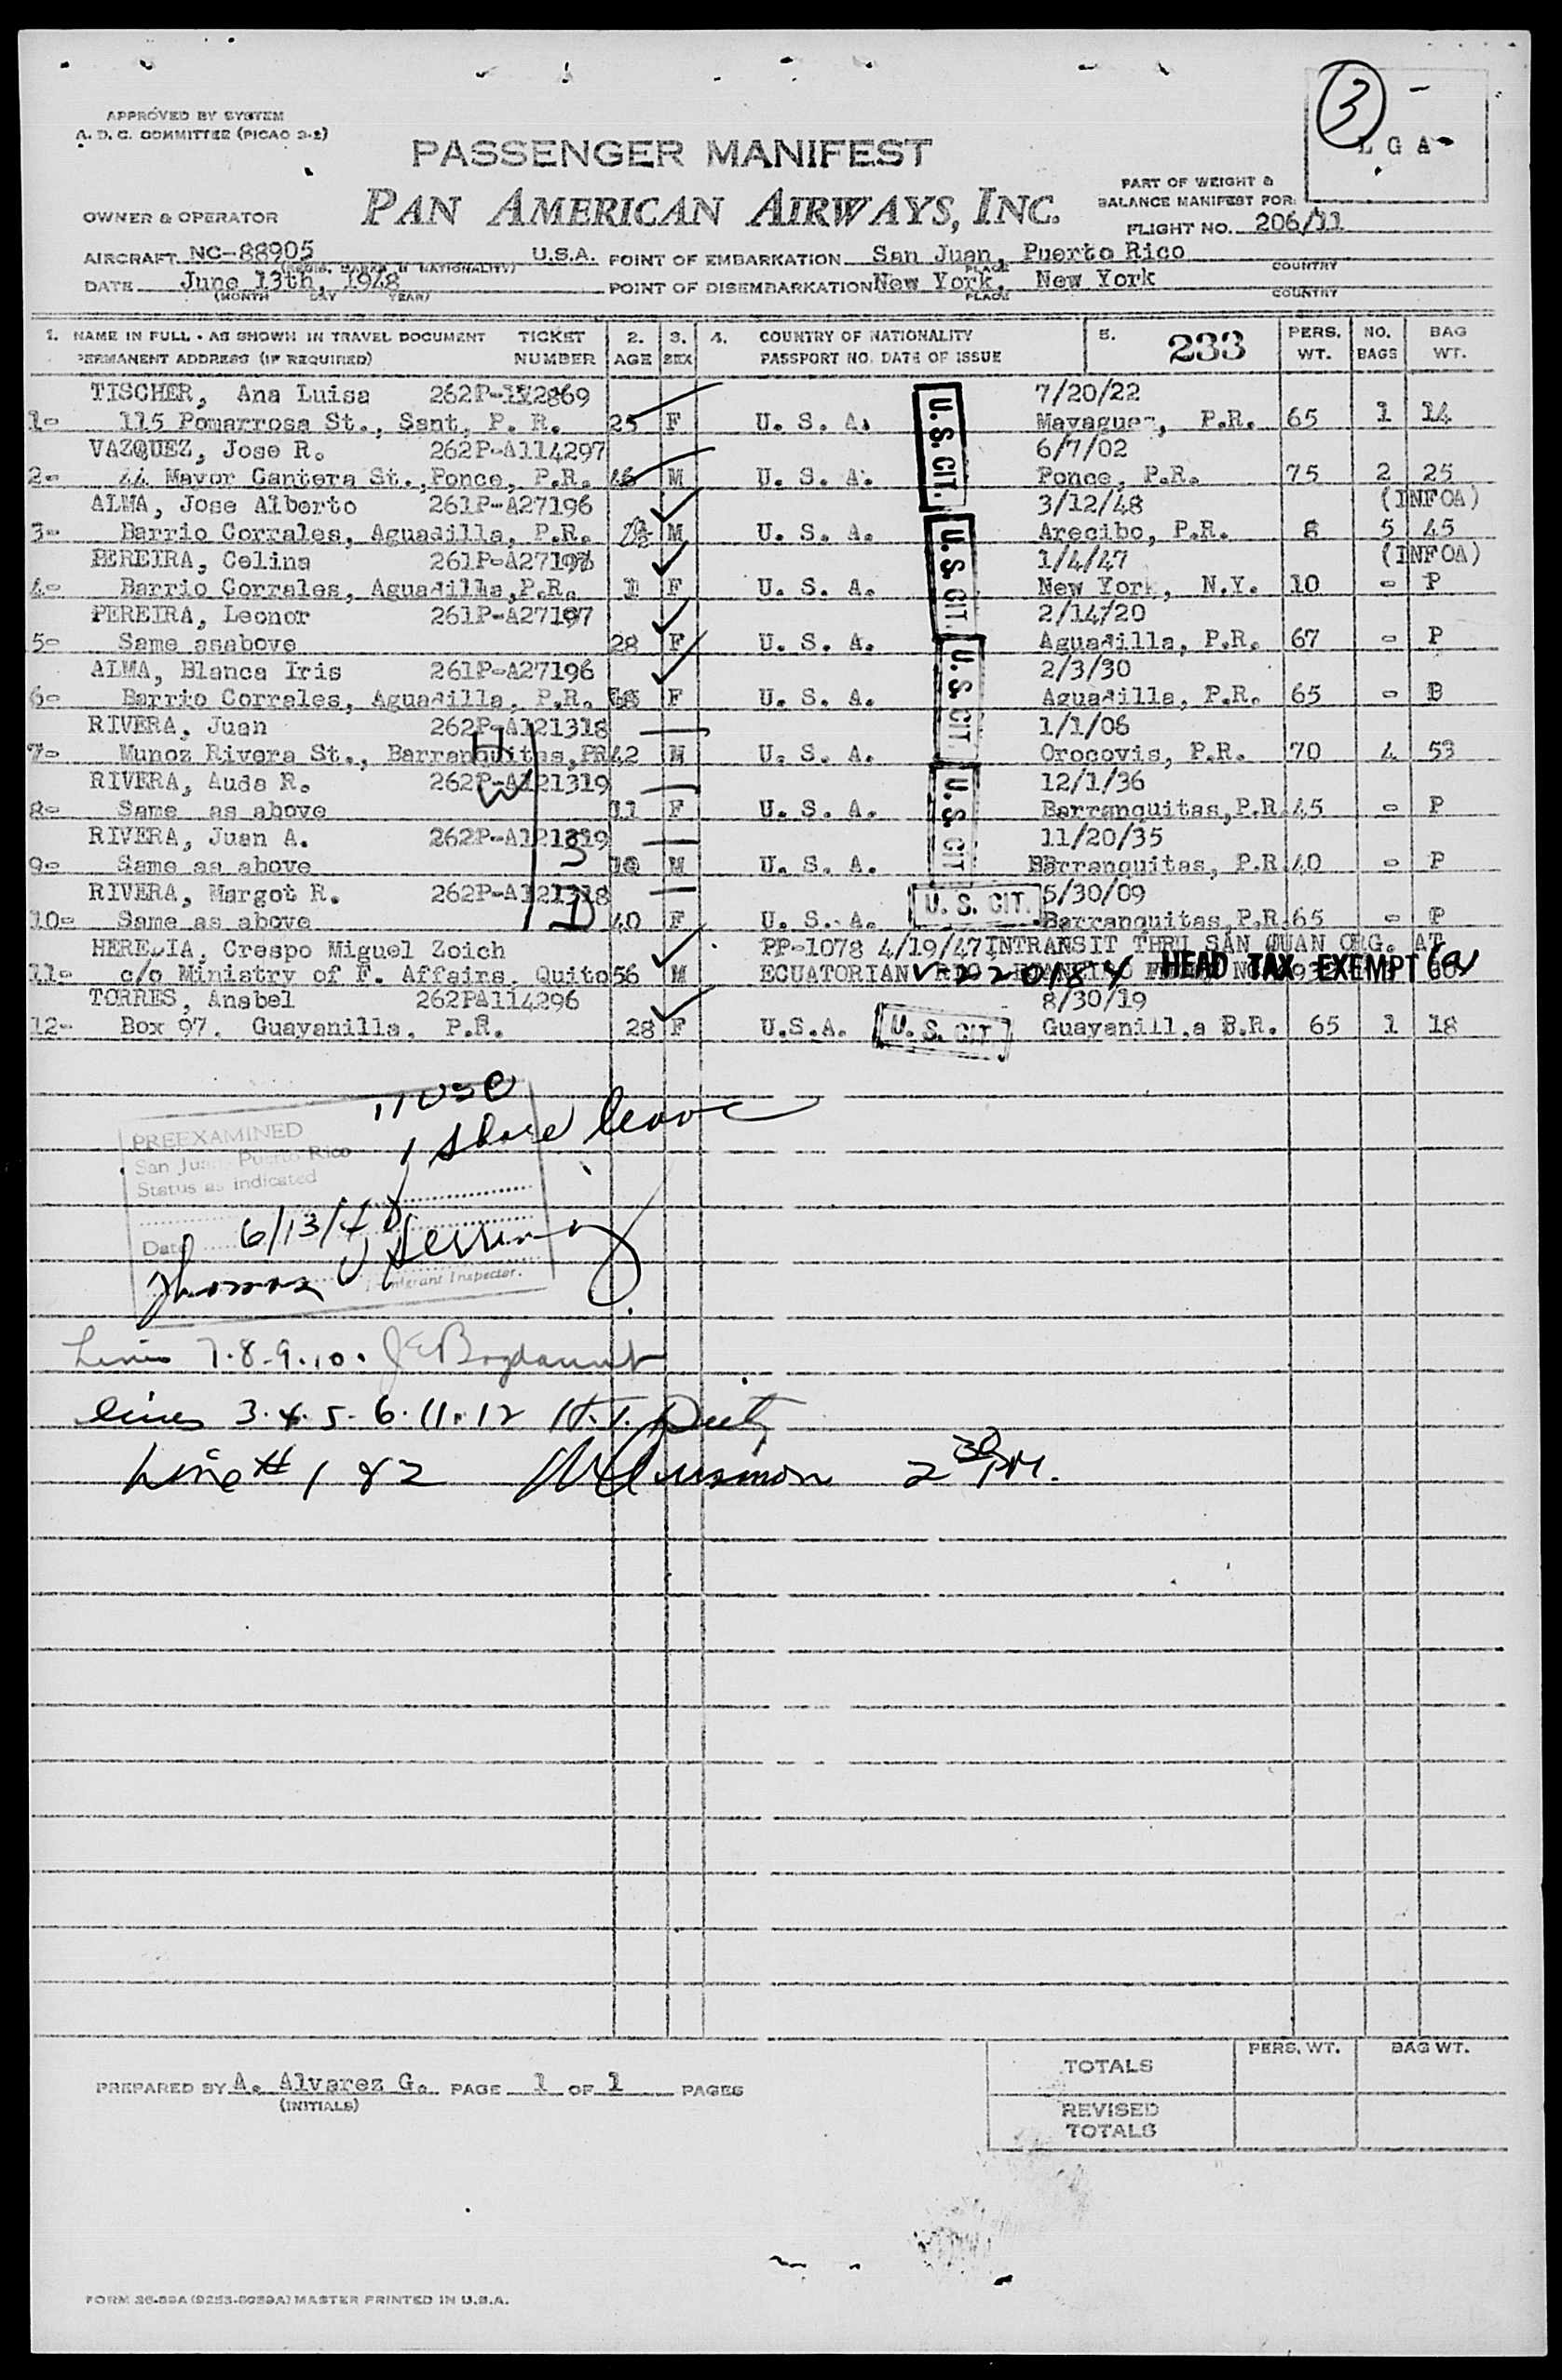 APPROVED BY SYSTEM
A. D. C. COMMITTEE (PICAO 3-2)
3
L G A
PASSENGER MANIFEST
PAN AMERICAN AIRWAYS, INC.
PART OF WEIGHT &
BALANCE MANIFEST FOR:
OWNER & OPERATOR
FLIGHT NO. 206/11
AIRCRAFT NC-88905 U.S.A. POINT OF EMBARKATION San Juan, Puerto Rico
(REGIS. MARKS & NATIONALITY) PLACE COUNTRY
DATE June 13th, 1948 POINT OF DISEMBARKATION New York, New York
(MONTH DAY YEAR) PLACE COUNTRY
1. NAME IN FULL - AS SHOWN IN TRAVEL DOCUMENT TICKET 2. 3. 4. COUNTRY OF NATIONALITY 5. 233 PERS. NO. BAG
PERMANENT ADDRESS (IF REQUIRED) NUMBER AGE SEX PASSPORT NO. DATE OF ISSUE WT. BAGS WT.
TISCHER, Ana Luisa 7/20/22
1- 115 Pomarrosa St., Sant, P. R. 25 F U. S. A. Mayaguez, P.R. 65 1 14
VAZQUEZ, Jose R. 262P-A114297 6/7/02
2- 44 Mayor Cantera St.,Ponce, P.R. 46 M U. S. A. Ponce, P.R. 75 2 25
ALMA, Jose Alberto 261P-A27196 3/12/48 (INFOA)
3- Barrio Corrales, Aguadilla, P.R. M U. S. A. Arecibo, P.R. 8 5 45
PEREIRA, Celina 1/4/47 (INFOA)
4- Barrio Corrales, Aguadilla,P.R. 1 F U. S. A. New York, N.Y. 10 - P
PEREIRA, Leonor 261P-A27197 2/14/20
5- Same asabove 28 F U. S. A. Aguadilla, P.R. 67 - P
ALMA, Blanca Iris 261P-A27196 2/3/30
6- Barrio Corrales, Aguadilla, P.R. 18 F U. S. A. Aguadilla, P.R. 65 - P
RIVERA, Juan 262P-A121318 1/1/06
7- Munoz Rivera St., Barranquitas,PR 42 M U. S. A. Orocovis, P.R. 70 4 53
RIVERA, Auda R. 262P-A121319 12/1/36
8- Same as above 11 F U. S. A. Barranquitas,P.R. 45 - P
RIVERA, Juan A. 262P-A121319 11/20/35
9- Same as above M U. S. A. Barranquitas, P.R. 40 - P
RIVERA, Margot R. 262P-A121318 5/30/09
10- Same as above 40 F U. S. A. Barranquitas,P.R. 65 - P
HEREDIA, Crespo Miguel Zoich PP-1078 4/19/47 INTRANSIT THRU SAN JUAN ORG. AT
11- c/o Ministry of F. Affairs, Quito 56 M ECUATORIAN HEAD TAX EXEMPT
TORRES, Anabel 262PA114296 8/30/19
12- Box 97, Guayanilla, P.R. 28 F U.S.A. Guayanill,a P.R. 65 1 18
U. S. CIT.
U. S. CIT.
U. S. CIT.
U. S. CIT
U. S. CIT.
U. S. CIT
11 USC
1 shore leave
PREEXAMINED
San Juan Puerto Rico
Status as indicated
Date 6/13/48
Thomas
Immigrant Inspector.
Lines 7.8.9.10.
lines 3.4.5.6.11.12 H.T.
Line # 1 & 2 2 30 PM.
PREPARED BY A. Alvarez G. PAGE 1 OF 1 PAGES
(INITIALS)
PERS. WT. BAG WT.
TOTALS
REVISED
TOTALS
FORM 26-89A (9253-8089A) MASTER PRINTED IN U.S.A.